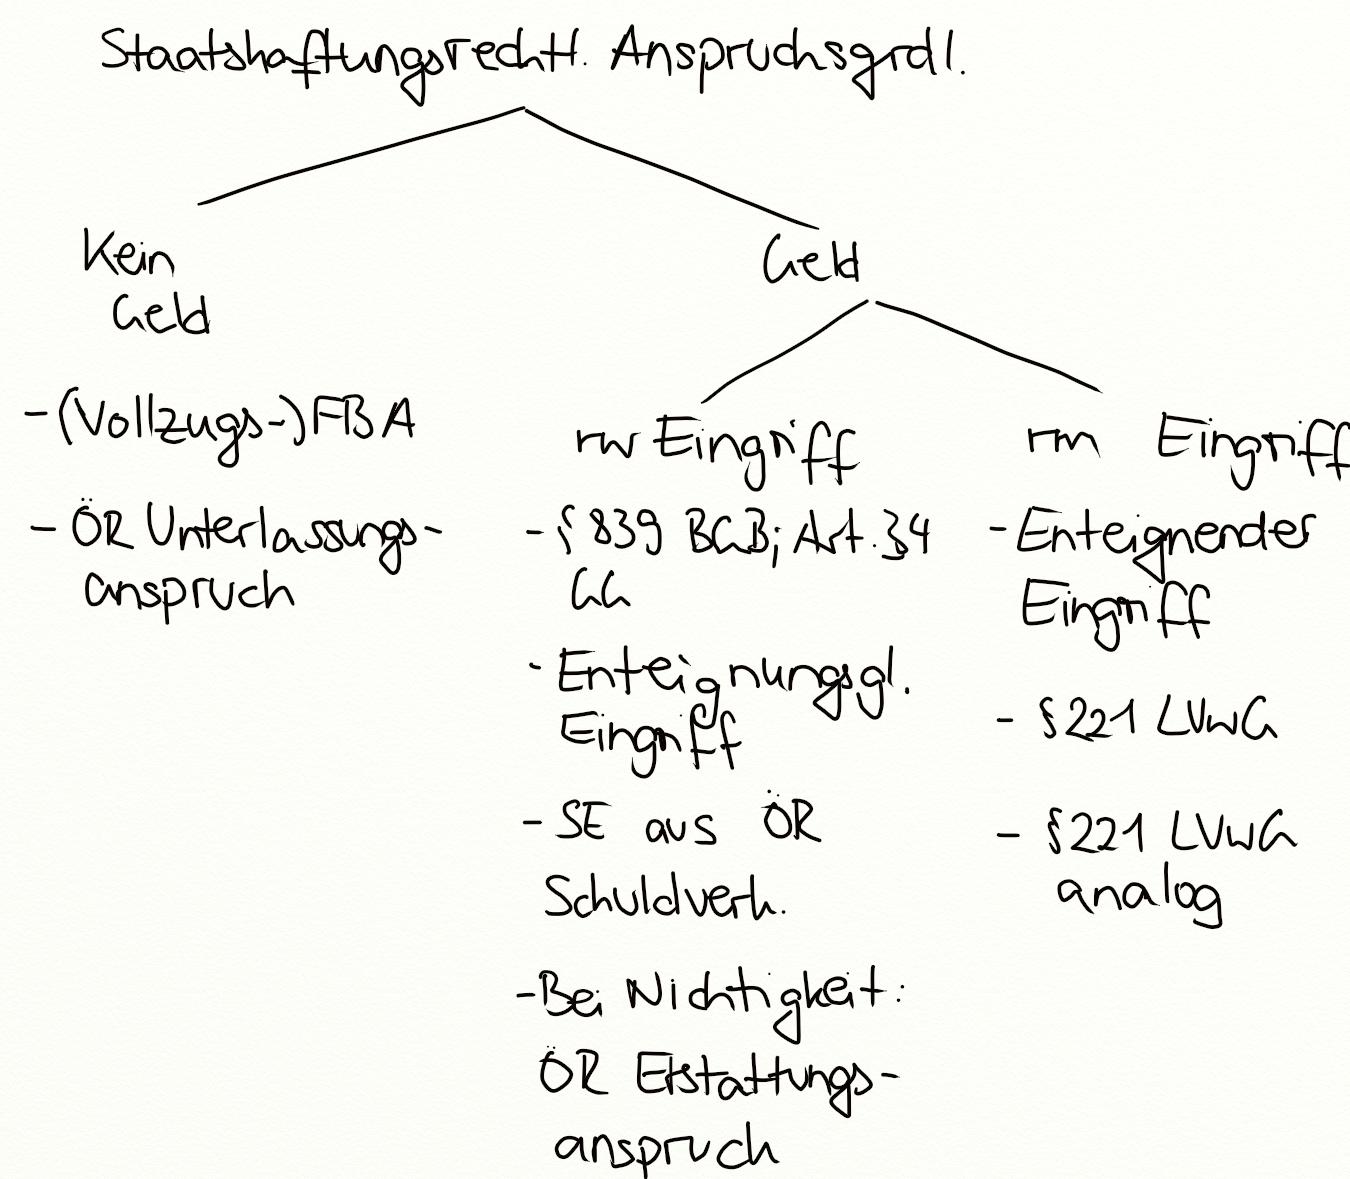 Staatshaftungsrechtl. Anspruchsgrdl.
Kein
Geld
- (Vollzugs-) FBA
- ÖR Unterlassungs-
anspruch
Geld
rw Eingriff
- § 839 BGB; Art. 34
GG
- Enteignungsgl.
Eingriff
- SE aus ÖR
Schuldverh.
- Bei Nichtigkeit:
ÖR Erstattungs-
anspruch
rm Eingriff
- Enteignender
Eingriff
- § 221 LVwG
- § 221 LVwG
analog